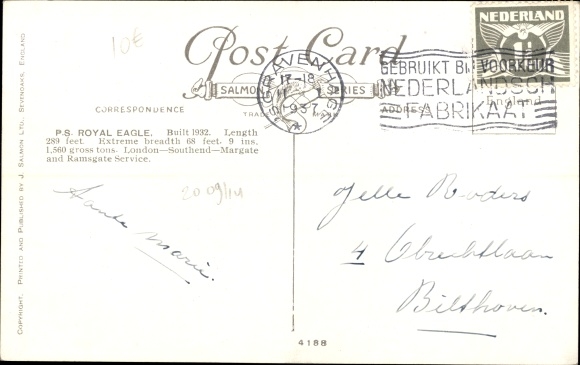 10€
Post Card
SALMON SERIES
TRADE MARK
NEDERLAND
1½
17-18
1937
GEBRUIKT BIJ VOORKEUR
NEDERLANDSCH
FABRIKAAT
CORRESPONDENCE
ADDRESS
England
P.S. ROYAL EAGLE. Built 1932. Length
289 feet. Extreme breadth 68 feet 9 ins.
1,560 gross tons. London—Southend—Margate
and Ramsgate Service.
2009/14
Tante
Marie.
Jelle
4
Bilthoven.
4188
COPYRIGHT. PRINTED AND PUBLISHED BY J. SALMON LTD., SEVENOAKS, ENGLAND